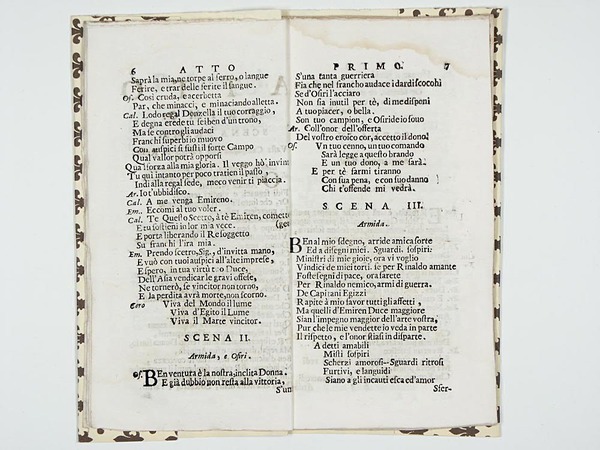 6 ATTO
Saprà la mia, ne torpe al ferro, o langue
Ferire, e trar delle ferite il sangue.
Os. Così cruda, e acerbetta
Par, che minacci, e minaciando alletta.
Cal. Lodo regal Donzella il tuo corraggio,
E degna erede tù sei ben d'un trono,
Ma se contro gli audaci
Franchi superbi io muovo
Cou auspici sì fusti il forte Campo
Qual vallor potrà opporsi
Qual forza alla mia gloria. Il veggo hò vinto
Tu quì intanto per poco tratien il passo,
Indi alla regal sede, meco venir ti piaccia.
Ar. Io t'ubbidisco.
Cal. A me venga Emireno.
Em. Eccomi al tuo voler.
Cal. Te Questo Scetro, à tè Emiten, cometto
E tu sostieni in lor mia vece. (gen
E porta liberando il Re soggetto
Su franchi l'ira mia.
Em. Prendo scetro, Sig., d'invitta mano,
E vuò con tuoi auspici all'alte imprese,
E spero, in tua virtù tuo Duce,
Dell'Asia vendicar le gravi offese,
Ne tornerò, se vincitor non torno,
E la perdita avrà morte, non scorno.
Coro Viva del Mondo il lume
Viva d'Egito il Lume
Viva il Marte vincitor.
SCENA II.
Armida, e Osiri.
Os. BEn ventura è la nostra, inclita Donna.
E già dubbio non resta alla vittoria,
S'un
PRIMO. 7
S'una tanta guerriera
Fia che nel francho audace i dardi scocchi
Se d'Osiri l'acciaro
Non sia inutil per tè, di me disponi
A tuo piacer, o bella.
Son tuo campion, e Osiride io suo
Ar. Coll'onor dell'offerta
Del vostro eroico cor, accetto il dono.
Os. Vn tuo cenno, un tuo comando
Sarà legge a questo brando
E un tuo dono, a me sarà.
E per tè sarmi tiranno
Con sua pena, e con suo danno
Chi t'offende mi vedrà.
SCENA III.
Armida.
BEn al mio sdegno, arride amica sorte
Ed a disegni miei. Sguardi, sospiri:
Ministri di mie gioie, ora vi voglio
Vindici de miei torti. se per Rinaldo amante
Foste segni di pace, ora sarete
Per Rinaldo nemico, armi di guerra.
De Capitani Egizzi
Rapite à mio favor tutti gli affetti,
Ma quelli d'Emiren Duce maggiore
Sian l'impegno maggior dell'arte vostra,
Pur che le mie vendette io veda in parte
Il rispetto, e l'onor stiasi in disparte.
A detti amabili
Misti sospiri
Scherzi amorosi--Sguardi ritrosi
Furtivi, e languidi
Siano a gli incauti esca ed'amor
Sser-